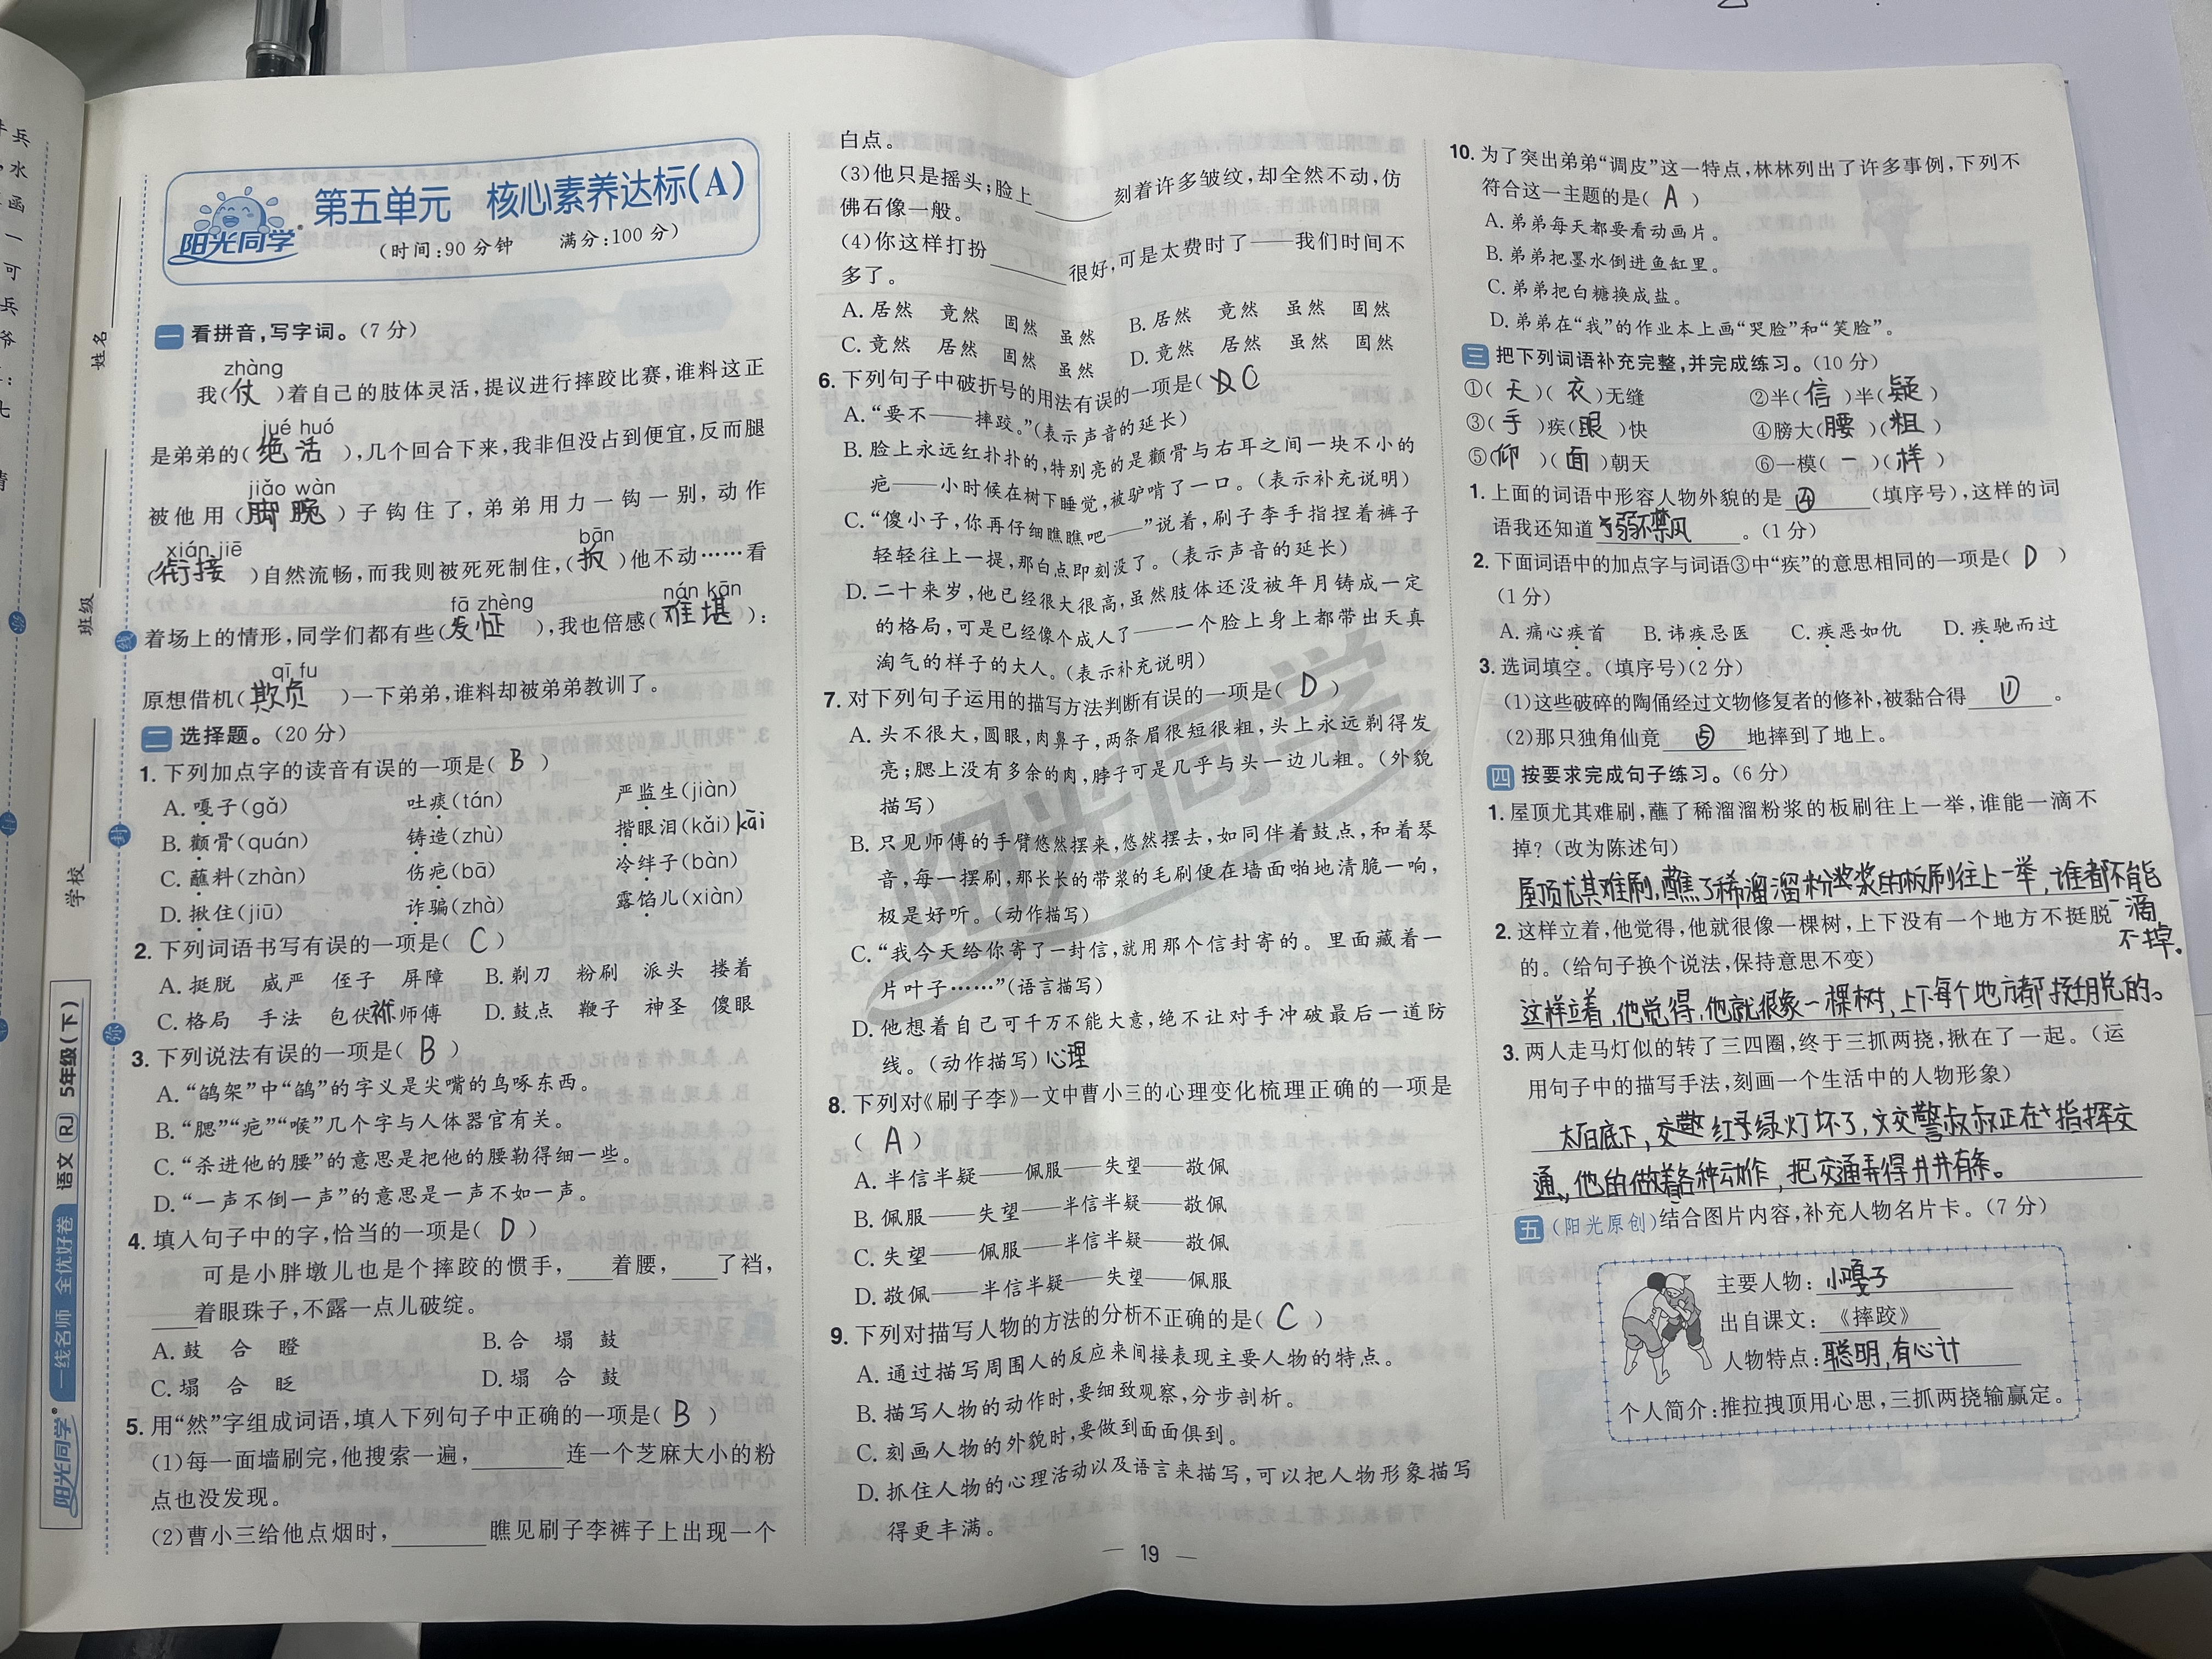 阳光同学
第五单元 核心素养达标(A)
(时间:90分钟 满分:100分)
一 看拼音,写字词。(7分)
zhàng
我(仗)着自己的肢体灵活,提议进行摔跤比赛,谁料这正
jué huó
是弟弟的(绝活),几个回合下来,我非但没占到便宜,反而腿
jiǎo wàn
被他用(脚腕)子钩住了,弟弟用力一钩一别,动作
xián jiē bān
(衔接)自然流畅,而我则被死死制住,(扳)他不动……看
fā zhèng nán kān
着场上的情形,同学们都有些(发怔),我也倍感(难堪):
qī fu
原想借机(欺负)一下弟弟,谁料却被弟弟教训了。
二 选择题。(20分)
1. 下列加点字的读音有误的一项是( B )
A. 嘎子(gǎ) 吐痰(tán) 严监生(jiàn)
B. 颧骨(quán) 铸造(zhù) 揩眼泪(kǎi) kāi
C. 蘸料(zhàn) 伤疤(bā) 冷绊子(bàn)
D. 揪住(jiū) 诈骗(zhà) 露馅儿(xiàn)
2. 下列词语书写有误的一项是( C )
A. 挺脱 威严 侄子 屏障 B. 剃刀 粉刷 派头 搂着
C. 格局 手法 包伏袱 师傅 D. 鼓点 鞭子 神圣 傻眼
3. 下列说法有误的一项是( B )
A. “鸽架”中“鸽”的字义是尖嘴的鸟啄东西。
B. “腮”“疤”“喉”几个字与人体器官有关。
C. “杀进他的腰”的意思是把他的腰勒得细一些。
D. “一声不倒一声”的意思是一声不如一声。
4. 填入句子中的字,恰当的一项是( D )
可是小胖墩儿也是个摔跤的惯手,____着腰,____了裆,
____着眼珠子,不露一点儿破绽。
A. 鼓 合 瞪 B. 合 塌 鼓
C. 塌 合 眨 D. 塌 合 鼓
5. 用“然”字组成词语,填入下列句子中正确的一项是( B )
(1)每一面墙刷完,他搜索一遍,________连一个芝麻大小的粉
点也没发现。
(2)曹小三给他点烟时,________瞧见刷子李裤子上出现一个
白点。
(3)他只是摇头;脸上________刻着许多皱纹,却全然不动,仿
佛石像一般。
(4)你这样打扮________很好,可是太费时了——我们时间不
多了。
A. 居然 竟然 固然 虽然 B. 居然 竟然 虽然 固然
C. 竟然 居然 固然 虽然 D. 竟然 居然 虽然 固然
6. 下列句子中破折号的用法有误的一项是( C )
A. “要不——摔跤。”(表示声音的延长)
B. 脸上永远红扑扑的,特别亮的是颧骨与右耳之间一块不小的
疤——小时候在树下睡觉,被驴啃了一口。(表示补充说明)
C. “傻小子,你再仔细瞧瞧吧——”说着,刷子李手指捏着裤子
轻轻往上一提,那白点即刻没了。(表示声音的延长)
D. 二十来岁,他已经很大很高,虽然肢体还没被年月铸成一定
的格局,可是已经像个成人了——一个脸上身上都带出天真
淘气的样子的大人。(表示补充说明)
7. 对下列句子运用的描写方法判断有误的一项是( D )
A. 头不很大,圆眼,肉鼻子,两条眉很短很粗,头上永远剃得发
亮;腮上没有多余的肉,脖子可是几乎与头一边儿粗。(外貌
描写)
B. 只见师傅的手臂悠然摆来,悠然摆去,如同伴着鼓点,和着琴
音,每一摆刷,那长长的带浆的毛刷便在墙面啪地清脆一响,
极是好听。(动作描写)
C. “我今天给你寄了一封信,就用那个信封寄的。里面藏着一
片叶子……”(语言描写)
D. 他想着自己可千万不能大意,绝不让对手冲破最后一道防
线。(动作描写) 心理
8. 下列对《刷子李》一文中曹小三的心理变化梳理正确的一项是
( A )
A. 半信半疑——佩服——失望——敬佩
B. 佩服——失望——半信半疑——敬佩
C. 失望——佩服——半信半疑——敬佩
D. 敬佩——半信半疑——失望——佩服
9. 下列对描写人物的方法的分析不正确的是( C )
A. 通过描写周围人的反应来间接表现主要人物的特点。
B. 描写人物的动作时,要细致观察,分步剖析。
C. 刻画人物的外貌时,要做到面面俱到。
D. 抓住人物的心理活动以及语言来描写,可以把人物形象描写
得更丰满。
10. 为了突出弟弟“调皮”这一特点,林林列出了许多事例,下列不
符合这一主题的是( A )
A. 弟弟每天都要看动画片。
B. 弟弟把墨水倒进鱼缸里。
C. 弟弟把白糖换成盐。
D. 弟弟在“我”的作业本上画“哭脸”和“笑脸”。
三 把下列词语补充完整,并完成练习。(10分)
①(天)(衣)无缝 ②半(信)半(疑)
③(手)疾(眼)快 ④膀大(腰)(粗)
⑤(仰)(面)朝天 ⑥一模(一)(样)
1. 上面的词语中形容人物外貌的是 ④ (填序号),这样的词
语我还知道 弱不禁风 。(1分)
2. 下面词语中的加点字与词语③中“疾”的意思相同的一项是( D )
(1分)
A. 痛心疾首 B. 讳疾忌医 C. 疾恶如仇 D. 疾驰而过
3. 选词填空。(填序号)(2分)
(1)这些破碎的陶俑经过文物修复者的修补,被黏合得 ① 。
(2)那只独角仙竟 ⑤ 地摔到了地上。
四 按要求完成句子练习。(6分)
1. 屋顶尤其难刷,蘸了稀溜溜粉浆的板刷往上一举,谁能一滴不
掉?(改为陈述句)
屋顶尤其难刷,蘸了稀溜溜粉浆的板刷往上一举,谁都不能
一滴
不掉。
2. 这样立着,他觉得,他就很像一棵树,上下没有一个地方不挺脱
的。(给句子换个说法,保持意思不变)
这样立着,他觉得,他就很象一棵树,上下每个地方都挺脱的。
3. 两人走马灯似的转了三四圈,终于三抓两挠,揪在了一起。(运
用句子中的描写手法,刻画一个生活中的人物形象)
底下,红绿灯坏了,交警叔叔正在指挥交
通,他的做着各种动作,把交通弄得井井有条。
五 (阳光原创)结合图片内容,补充人物名片卡。(7分)
主要人物: 小嘎子
出自课文: 《摔跤》
人物特点: 聪明,有心计
个人简介:推拉拽顶用心思,三抓两挠输赢定。
— 19 —
姓名
班级
学校
线
封
弥
阳光同学 一线名师 全优好卷 语文 RJ 5年级(下)
阳光同学